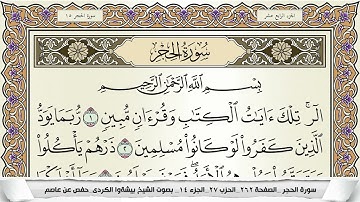 الجزء الرابع عشر
سورة الحجر ١٥
سُورَةُ الحِجْرِ
بِسْمِ اللَّهِ الرَّحْمَٰنِ الرَّحِيمِ
الٓر ۚ تِلْكَ ءَايَٰتُ ٱلْكِتَٰبِ وَقُرْءَانٍ مُّبِينٍ ١ رُّبَمَا يَوَدُّ
ٱلَّذِينَ كَفَرُوا۟ لَوْ كَانُوا۟ مُسْلِمِينَ ٢ ذَرْهُمْ يَأْكُلُوا۟
سورة الحجر _ الصفحة ٢٦٢_ الحزب ٢٧_ الجزء ١٤ _ بصوت الشيخ بيشةوا الكردي_ حفص عن عاصم